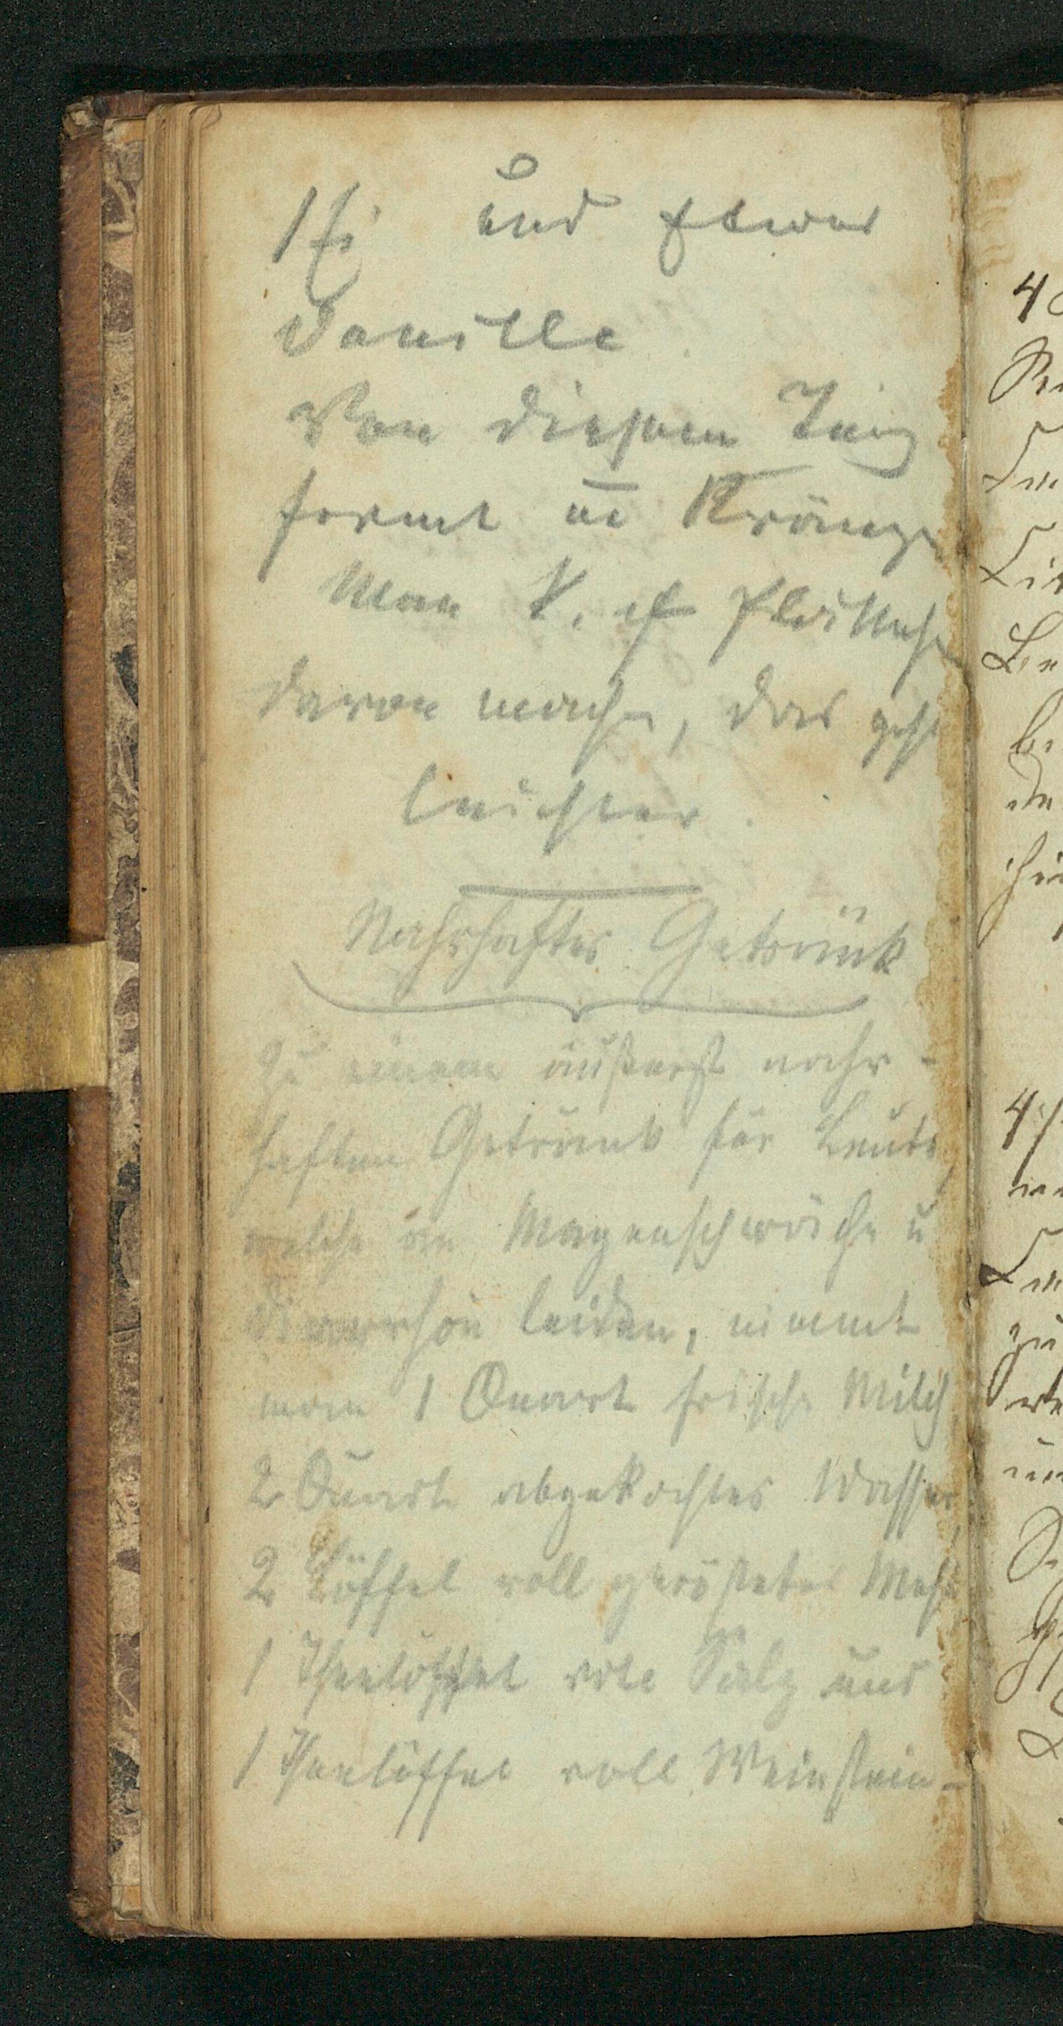 1 Ei und etwas
Vanille
Von diesem Teig
formt m̄ Kränze
Man k. a. Plättch
davon mach̄, das geht
leichter.
Nahrhaftes Getränk
Zu einem äußerst nahr-
haften Getränk für Leute,
welche an Magenschwäche u
Diarrhöe leiden, nimmt
man 1 Quart frische Milch
2 Quart abgekochtes Wasser,
2 Löffel voll geröstetes Mehl
1 Theelöffel voll Salz und
1 Theelöffel voll Weinstein-